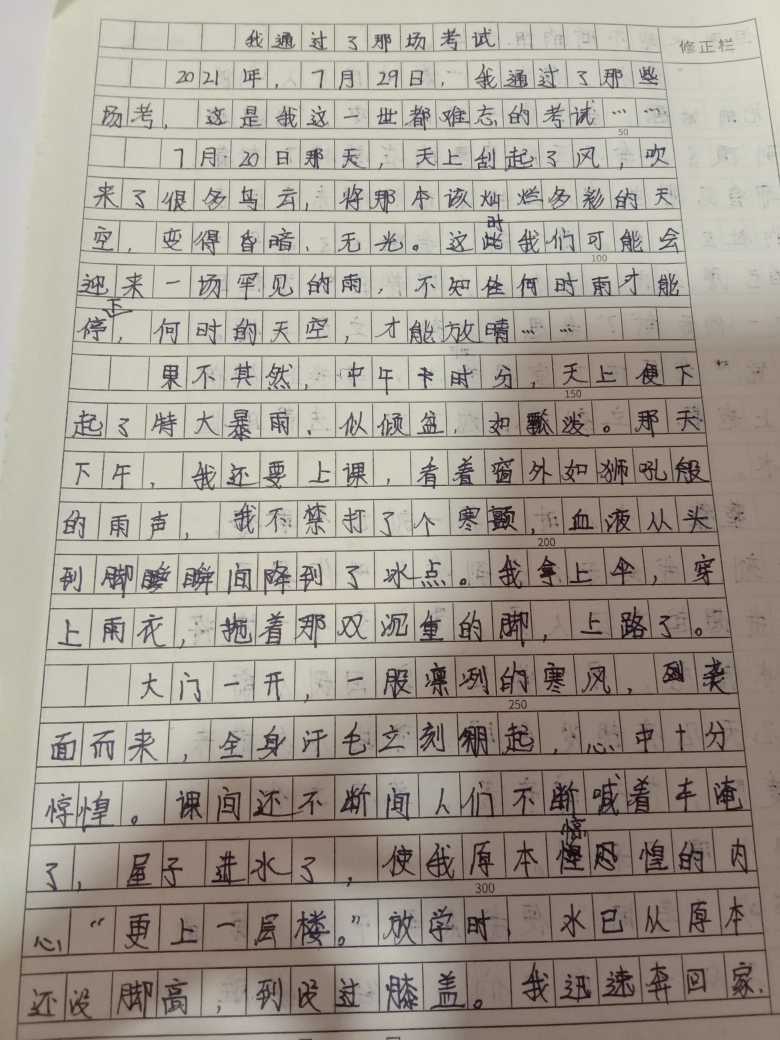 我通过了那场考试
修正栏
2021年，7月29日，我通过了那些
场考，这是我这一世都难忘的考试……
50
7月20日那天，天上刮起了风，吹
来了很多乌云，将那本该灿烂多彩的天
空，变得昏暗、无光。这时我们可能会
100
迎来一场罕见的雨，不知任何时雨才能
停下，何时的天空，才能放晴……
果不其然，中午时分，天上便下
150
起了特大暴雨，似倾盆，如瓢泼。那天
下午，我还要上课，看着窗外如狮吼般
的雨声，我不禁打了个寒颤，血液从头
200
到脚瞬间降到了冰点。我拿上伞，穿
上雨衣，拖着那双沉重的脚，上路了。
大门一开，一股凛冽的寒风，袭
250
面而来，全身汗毛立刻绷起，心中十分
惊惶。课间还不断间人们不断喊着车淹
了，屋子进水了，使我原本惊惶的内
300
心“更上一层楼。”放学时，水已从原本
还没脚高，到没过膝盖。我迅速奔回家，